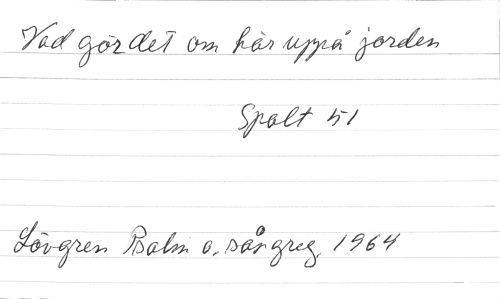 Vad gör det om här uppå jorden
Spalt 51
Lövgren Psalm o. sångreg. 1964